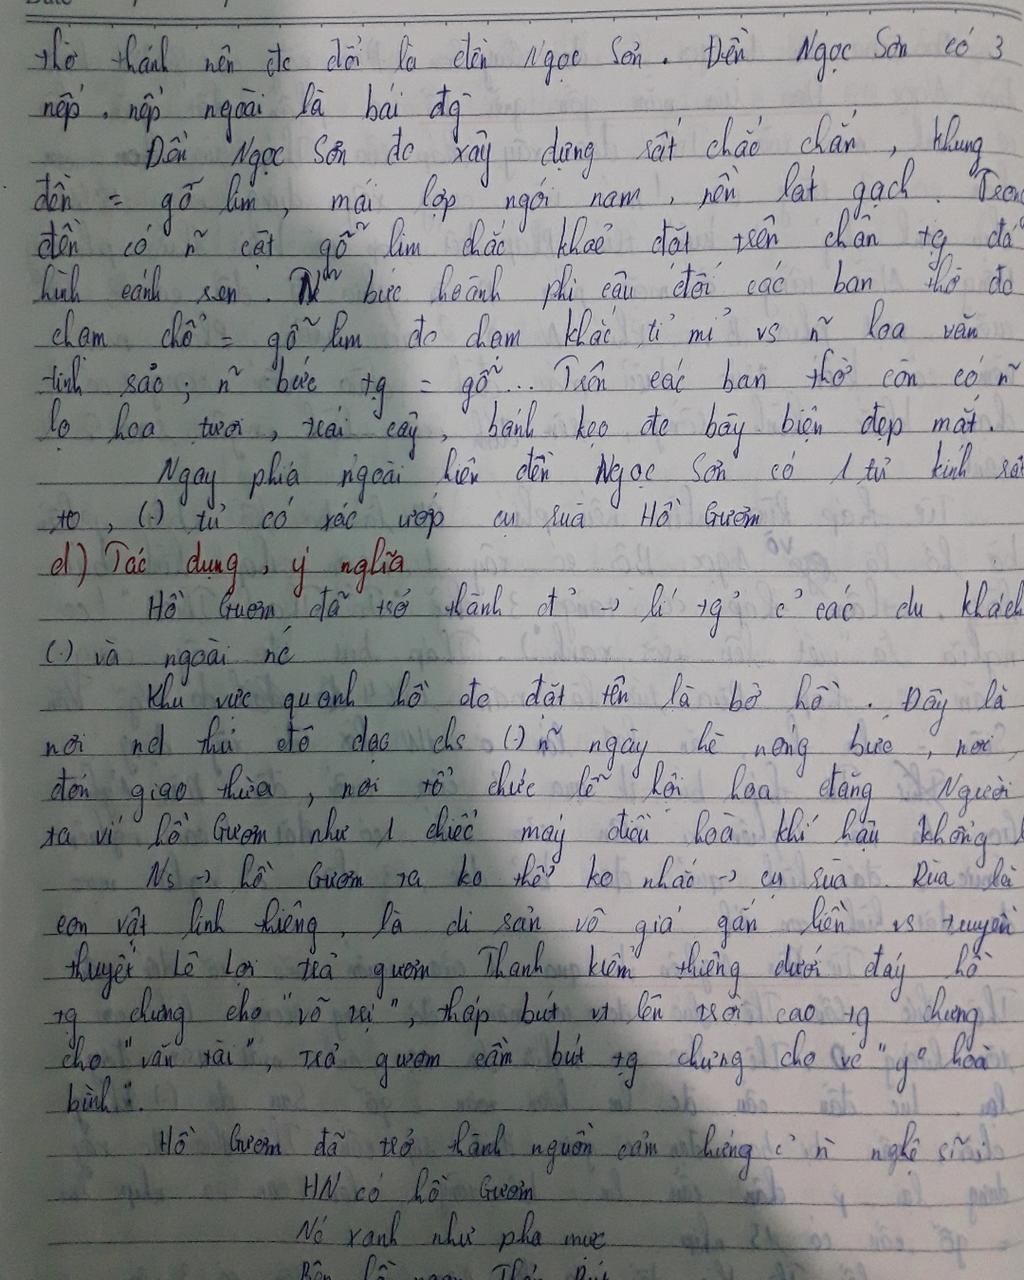 thờ thánh nên đc đổi là đền Ngọc Sơn. Đền Ngọc Sơn có 3
nếp. nếp ngoài là bái đg
Đền Ngọc Sơn đc xây dựng rất chắc chắn, khung
đền = gỗ lim, mái lợp ngói nam, nền lát gạch. Trong
đền có n~ cột gỗ lim chắc khoẻ đặt trên chân tg đá
hình cánh sen. N~ bức hoành phi câu đối các ban thờ đc
chạm chổ = gỗ lim đc chạm khắc tỉ mỉ vs n~ hoa văn
tinh sảo; n~ bức tg = gỗ... Trên các ban thờ còn có n~
lọ hoa tươi, trái cây, bánh kẹo đc bày biện đẹp mắt.
Ngay phía ngoài hiên đền Ngọc Sơn có 1 tủ kính rất
to, (.) tủ có xác ướp cụ rùa Hồ Gươm
d) Tác dụng, ý nghĩa
Hồ Gươm đã trở thành đ² -> lí tg² c² các du khách
(.) và ngoài nc
Khu vực quanh hồ đc đặt tên là bờ hồ. Đây là
nơi nd thủ đô dạo chs (.) n~ ngày hè nóng bức, nơi
đón giao thừa, nơi tổ chức lễ hội hoa đăng Người
ta ví hồ Gươm như 1 chiếc máy điều hoà khí hậu khổng
Ns -> hồ Gươm ta ko thể ko nhắc -> cụ rùa. Rùa là
con vật linh thiêng, là di sản vô giá gắn liền vs truyền
thuyết Lê Lợi trả gươm Thanh kiếm thiêng dưới đáy hồ
tg chưng cho "võ trị", tháp bút vt lên trời cao tg chưng
cho "văn tài", trả gươm cầm bút tg chưng cho vc "y" hoà
bình".
Hồ Gươm đã trở thành nguồn cảm hứng c² n` nghệ sĩ
HN có hồ Gươm
Nó xanh như pha mực
Bên hồ ngọn Tháp Bút